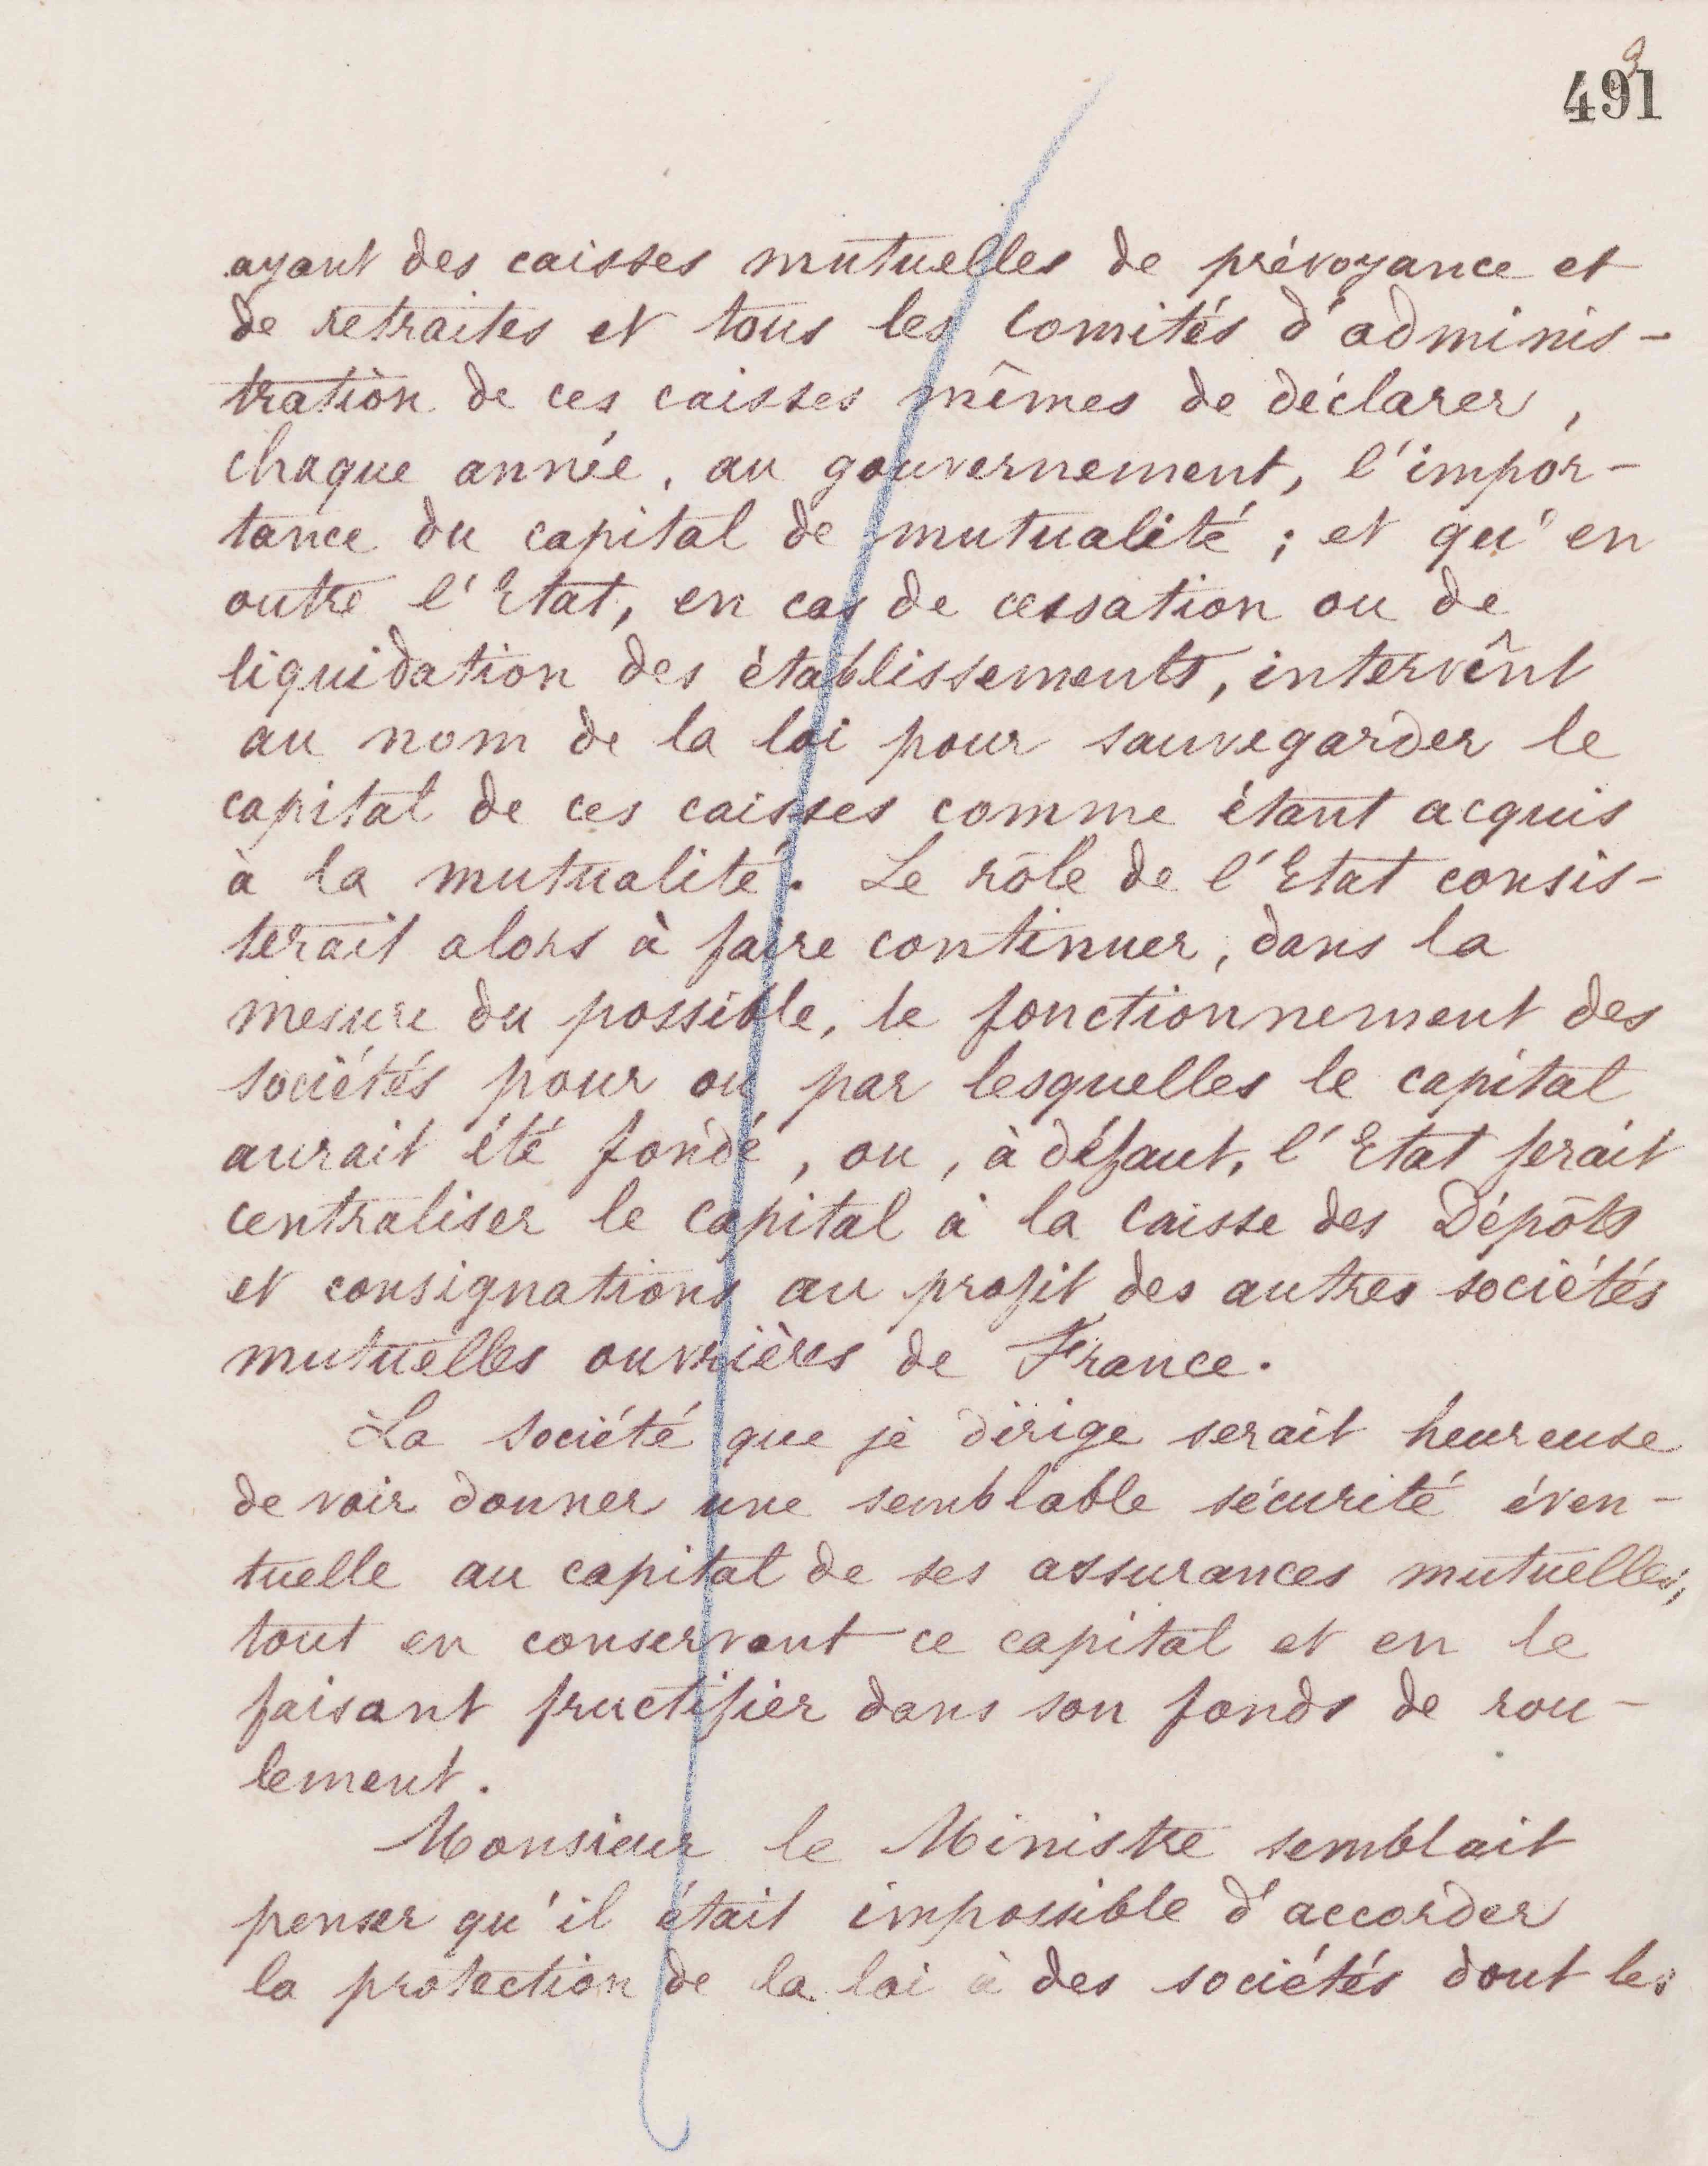 9
491
ayant des caisses mutuelles de prévoyance et
de retraites et tous les comités d'adminis-
tration de ces caisses mêmes de déclarer,
chaque année, au gouvernement, l'impor-
tance du capital de mutualité ; et qu'en
outre l'Etat, en cas de cessation ou de
liquidation des établissements, intervînt
au nom de la loi pour sauvegarder le
capital de ces caisses comme étant acquis
à la mutualité. Le rôle de l'Etat consis-
terait alors à faire continuer, dans la
mesure du possible, le fonctionnement des
sociétés pour ou par lesquelles le capital
aurait été fondé, ou, à défaut, l'Etat ferait
centraliser le capital à la caisse des Dépôts
et consignations au profit des autres sociétés
mutuelles ouvrières de France.
La société que je dirige serait heureuse
de voir donner une semblable sécurité éven-
tuelle au capital de ses assurances mutuelles,
tout en conservant ce capital et en le
faisant fructifier dans son fonds de rou-
lement.
Monsieur le Ministre semblait
penser qu'il était impossible d'accorder
la protection de la loi à des sociétés dont les